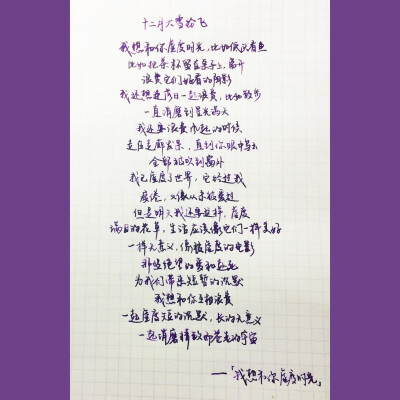 十二月大雪纷飞
我想和你虚度时光，比如低头看鱼
比如把茶杯留在桌子上，离开
浪费它们好看的阴影
我还想连落日一起浪费，比如散步
一直消磨到星光满天
我还要浪费风起的时候
坐在走廊发呆，直到你眼中乌云
全部被吹到窗外
我已虚度了世界，它经过我
疲倦，又像从未被爱过
但是明天我还要这样，虚度
满目的花草，生活应该像它们一样美好
一样无意义，像被虚度的电影
那些绝望的爱和赴死
为我们带来短暂的沉默
我想和你互相浪费
一起虚度短的沉默，长的无意义
一起消磨精致而苍老的宇宙
——「我想和你虚度时光」